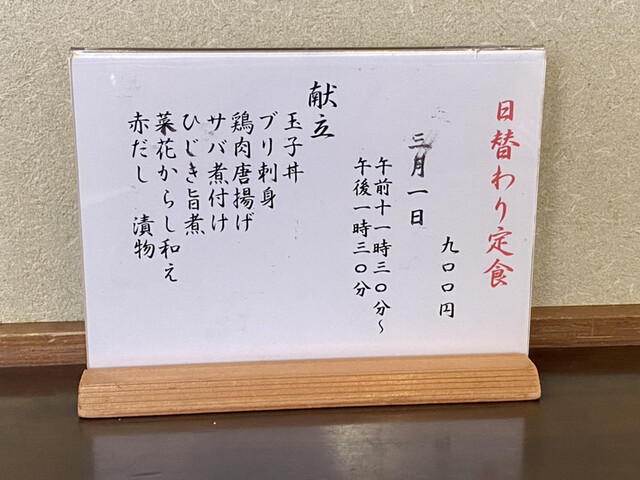 日替わり定食
九〇〇円
三月一日
午前十一時三〇分~
午後一時三〇分
献立
玉子丼
ブリ刺身
鶏肉唐揚げ
サバ煮付け
ひじき旨煮
菜花からし和え
赤だし 漬物